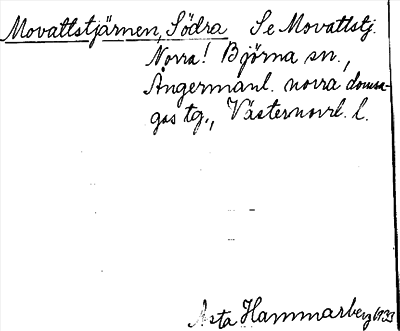 Movattstjärnen, Södra Se Movattstj.
Norra! Björna sn.,
Ångermanl. norra domsa-
gas tg., Västernorrl. l.
Asta Hammarberg 1933